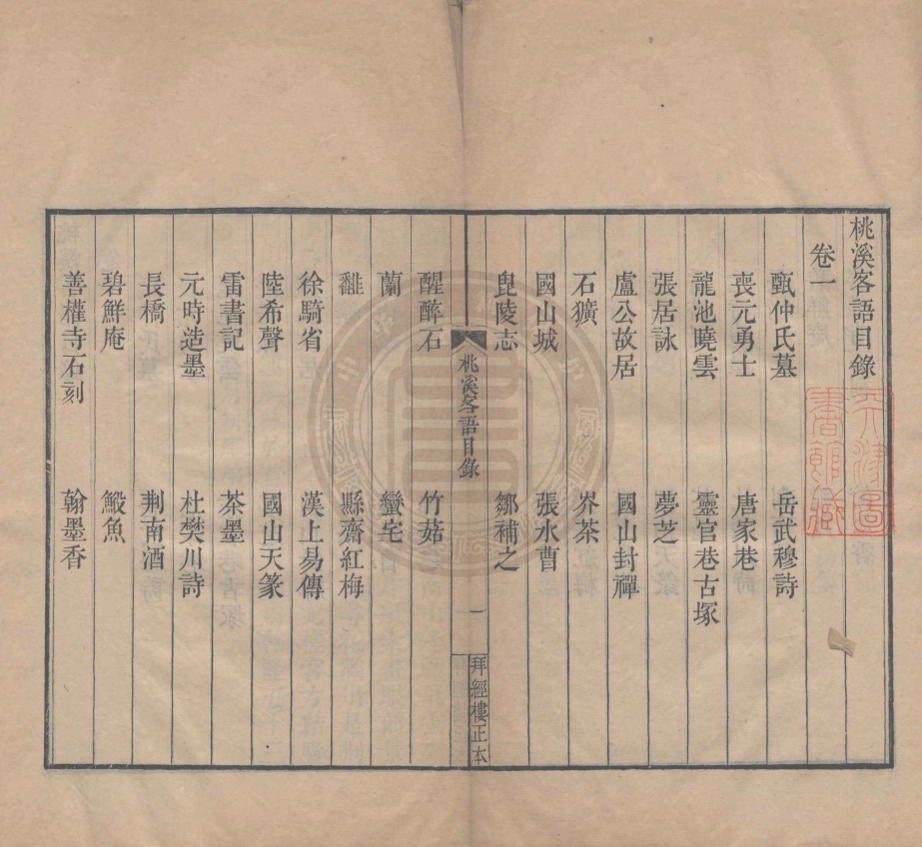 桃溪客語目錄
卷一
甄仲氏墓 岳武穆詩
喪元勇士 唐家巷
龍池曉雲 靈官巷古塚
張居詠 夢芝
盧公故居 國山封禪
石獷 岕茶
國山城 張水曹
毘陵志 鄒補之
桃溪客語目錄 一 拜經樓正本
醒醉石 竹菇
蘭 蠻宅
雝 縣齋紅梅
徐騎省 漢上易傳
陸希聲 國山天篆
雷書記 茶墨
元時造墨 杜樊川詩
長橋 荆南酒
碧鮮庵 鰕魚
善權寺石刻 翰墨香
天津圖書館藏